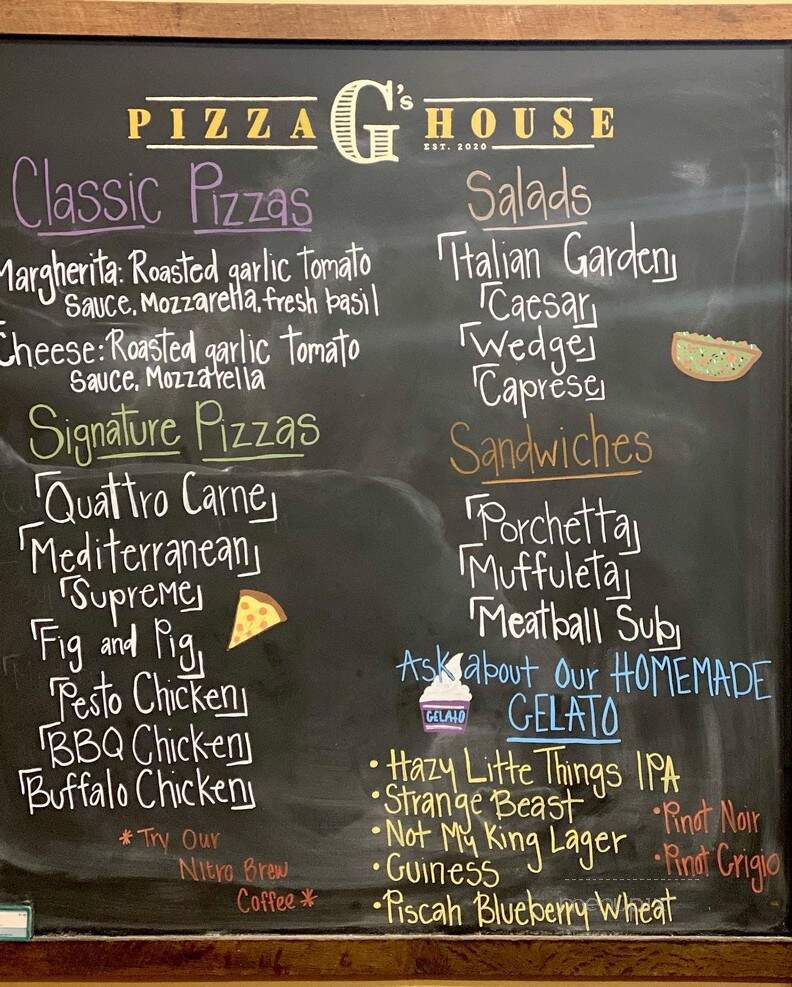 PIZZA G's HOUSE
EST. 2020
Classic Pizzas
Margherita: Roasted garlic Tomato
Sauce, Mozzarella, fresh basil
Cheese: Roasted garlic Tomato
Sauce, Mozzarella
Signature Pizzas
Quattro Carne
Mediterranean
Supreme
Fig and Pig
Pesto Chicken
BBQ Chicken
Buffalo Chicken
*Try Our
Nitro Brew
Coffee*
Salads
Italian Garden
Caesar
Wedge
Caprese
Sandwiches
Porchetta
Muffuleta
Meatball Sub
Ask about Our HOMEMADE
GELATO
GELATO
• Hazy Little Things IPA
• Strange Beast
• Not My King Lager
• Guiness
• Piscah Blueberry Wheat
• Pinot Noir
• Pinot Grigio